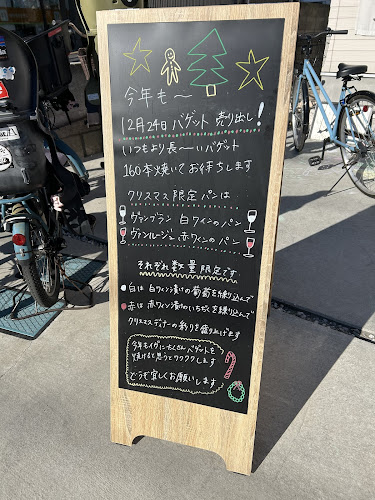 今年も〜
12月24日 バゲット 売り出し!
いつもより長〜いバゲット
160本焼いてお待ちします
クリスマス限定パンは
ヴァンブラン 白ワインのパン
ヴァンルージュ 赤ワインのパン
それぞれ数量限定です
白は 白ワイン漬けの葡萄を練り込んで
赤は 赤ワイン漬のいちじくを練り込んで
クリスマスディナーの彩りを盛り上げます
今年もイヴにたくさんバゲットを
焼けると思うとワクワクします
どうぞ宜しくお願いします